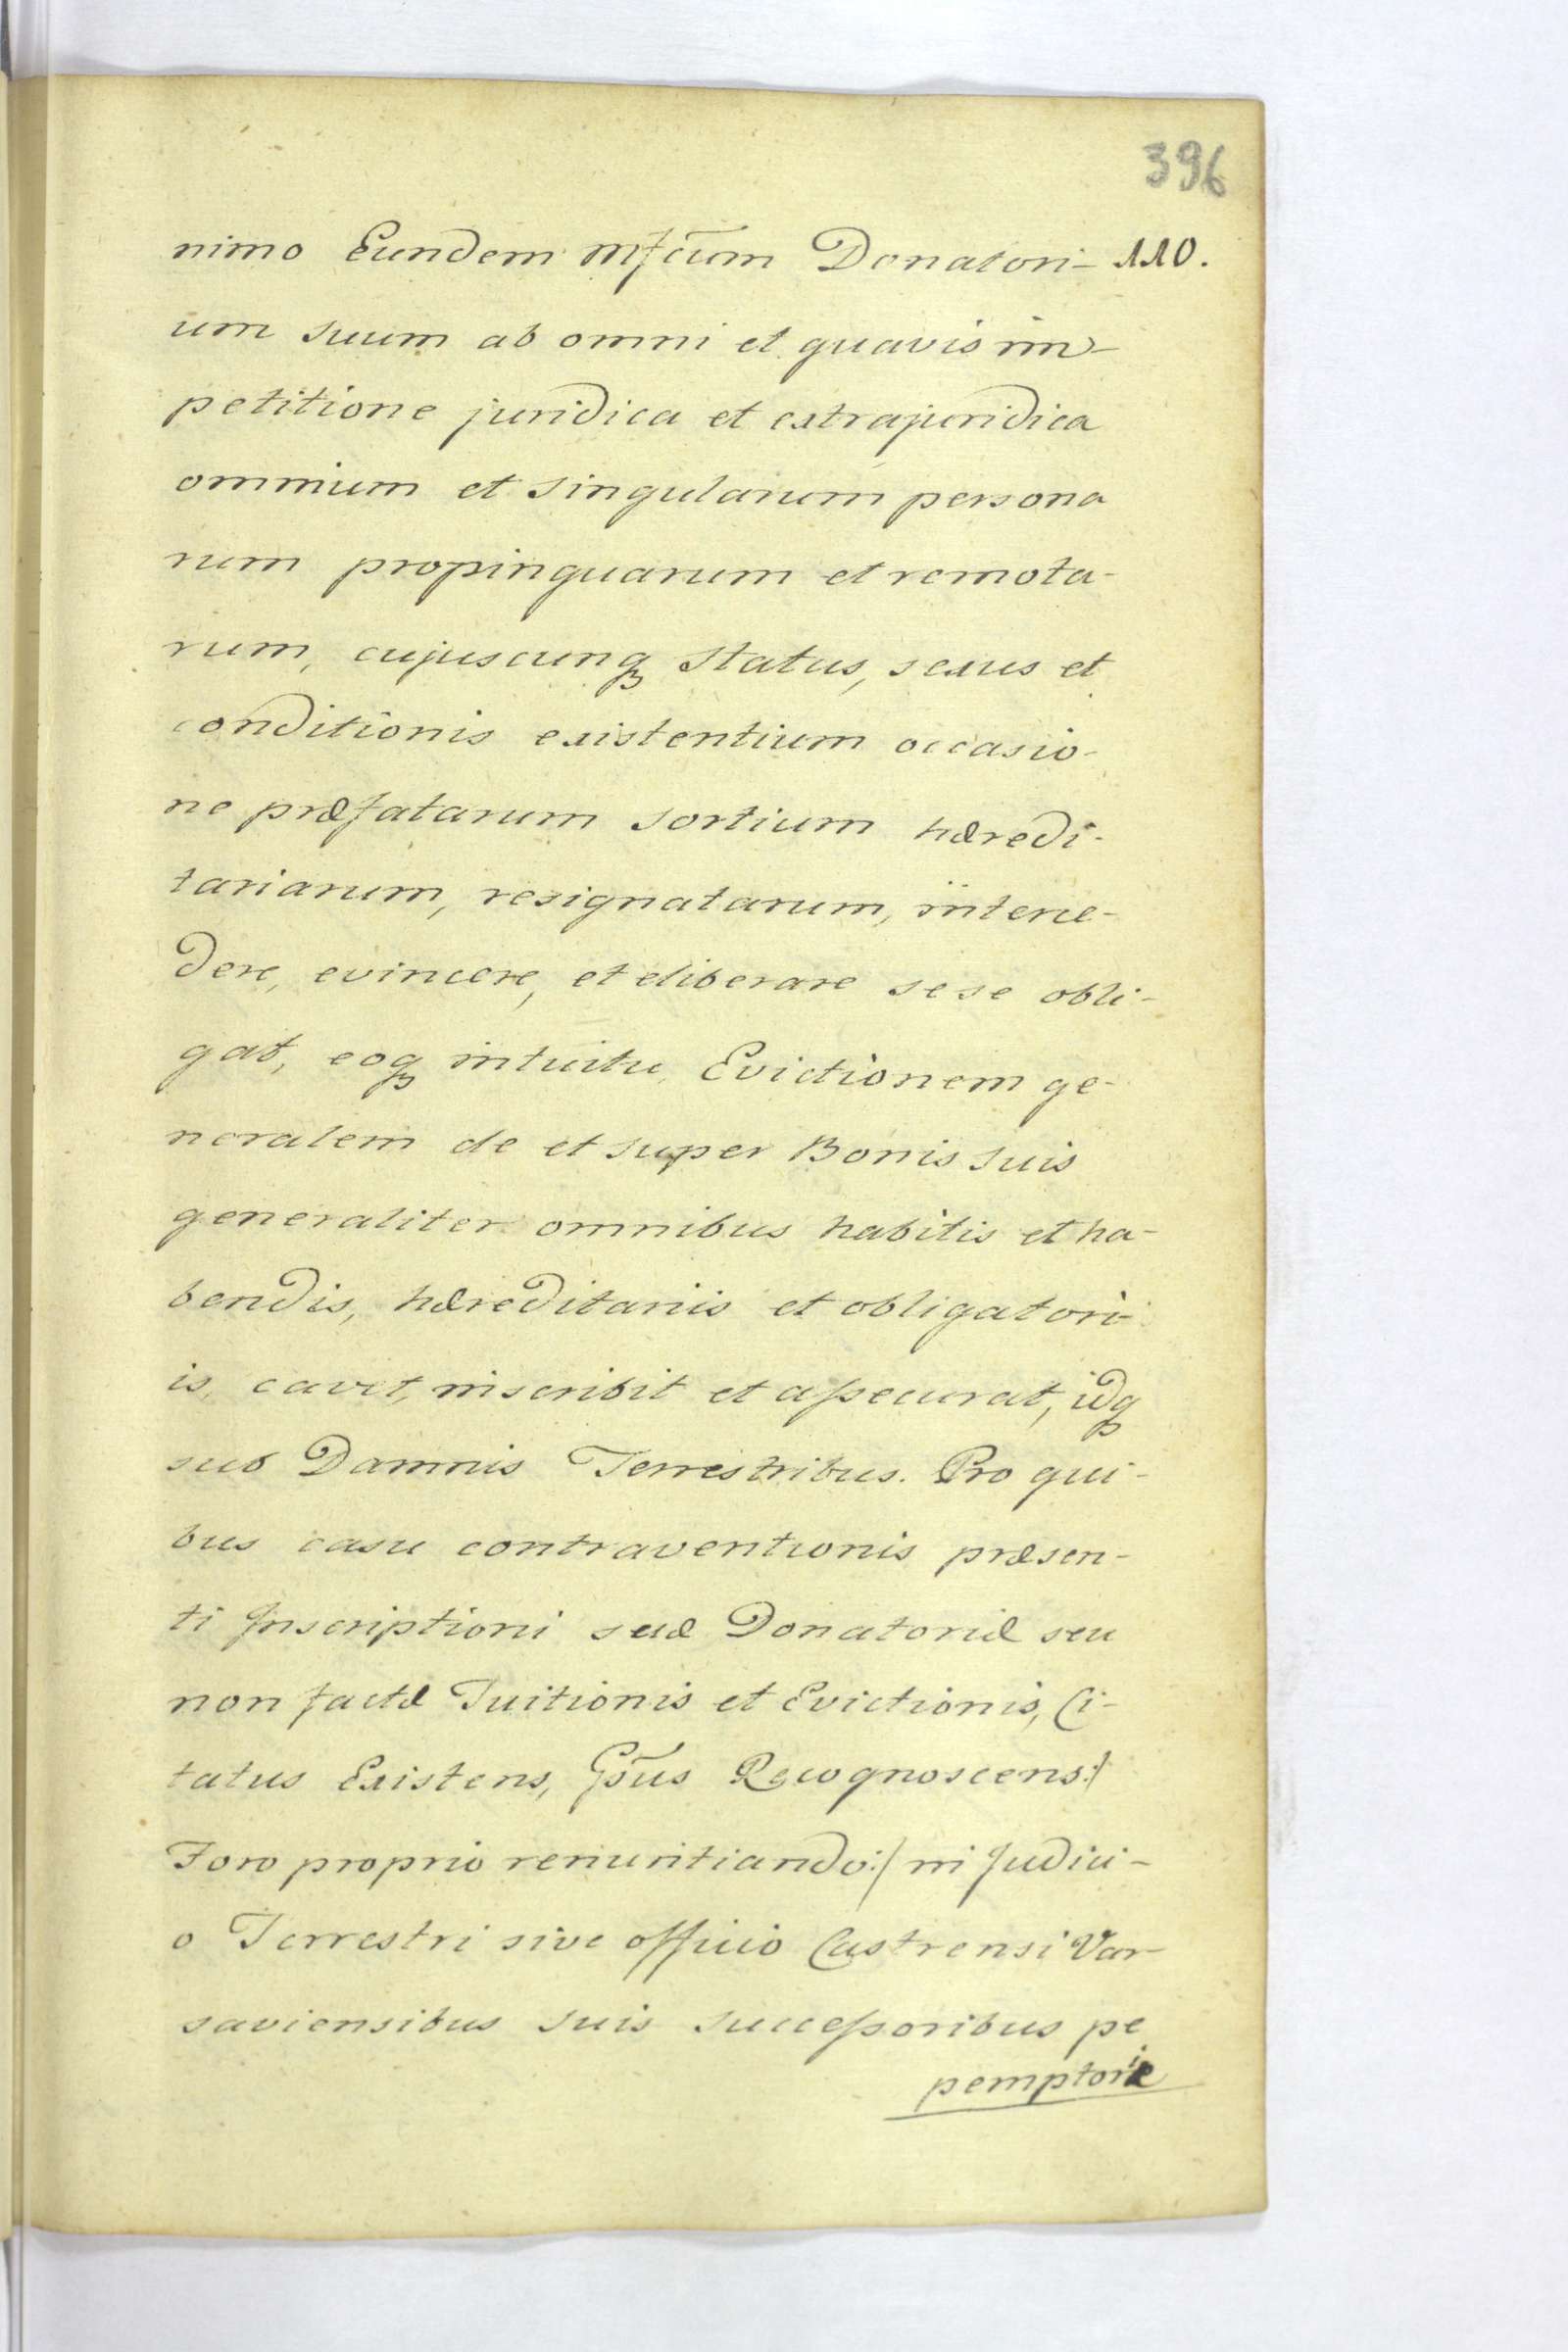 396
nimo Eundem Mfcum Donatori- 110.
um suum ab omni et quavis im-
petitione juridica et extrajuridica
omnium et singularum persona
rum propinquarum et remota-
rum, cujuscunq status, sexus et
conditionis existentium occasio-
ne præfatarum sortium hæredi-
tariarum, resignatarum, interce-
dere, evincere, et eliberare sese obli-
gat, eoq intuitu, Evictionem ge-
neralem de et super Bonis suis
generaliter omnibus habitis et ha-
bendis, hæreditariis et obligatori-
is, cavet, inscribit et assecurat, idq
sub Damnis Terrestribus. Pro qui-
bus casu contraventionis præsen-
ti Inscriptioni suæ Donatoriæ seu
non factæ Tuitionis et Evictionis, Ci-
tatus Existens, Gsus Recognoscens:/
Foro proprio renuntiando:/ in Judici-
o Terrestri sive officio Castrensi Var-
saviensibus suis successoribus pe
pemptorie